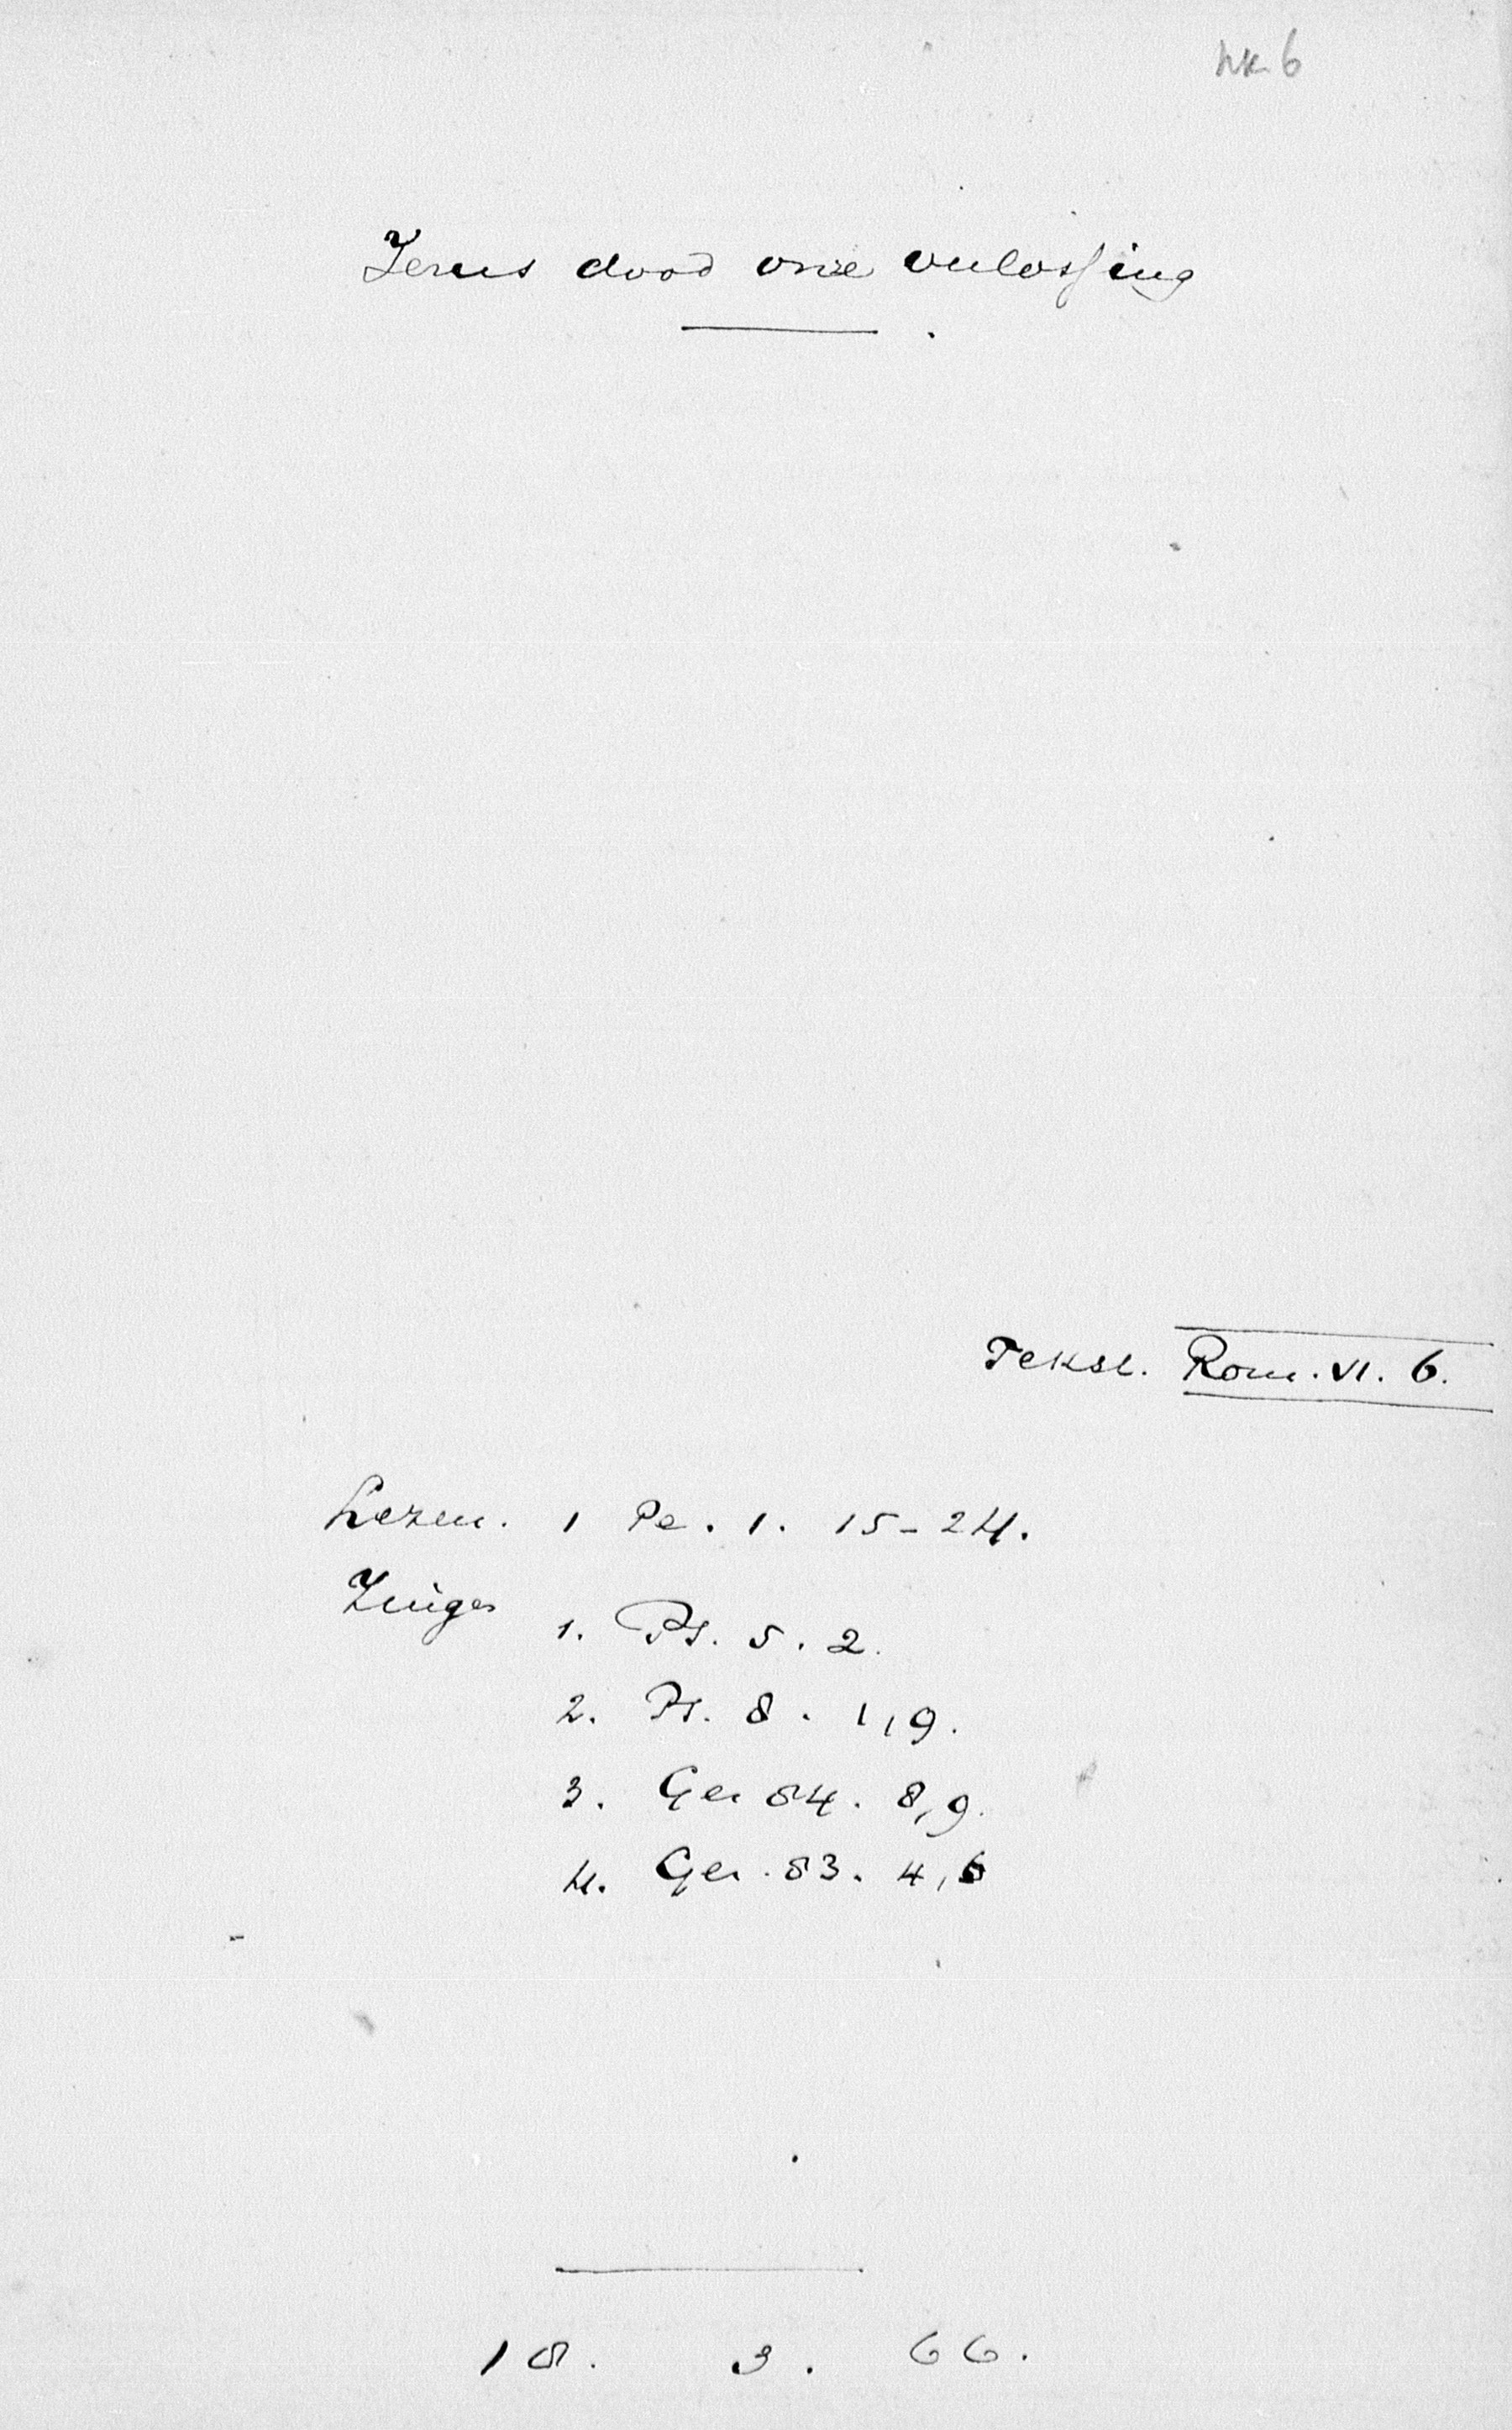 nr. 6
Jezus dood onze verlossing
Tekst. Rom. VI. 6.
Lezen. 1 Pe. 1. 15-24.
Zingen
1. Ps. 5. 2.
2. Ps. 8. 1,9.
3. Gez 54. 8,9.
4. Gez. 53. 4,6
18. 3. 66.